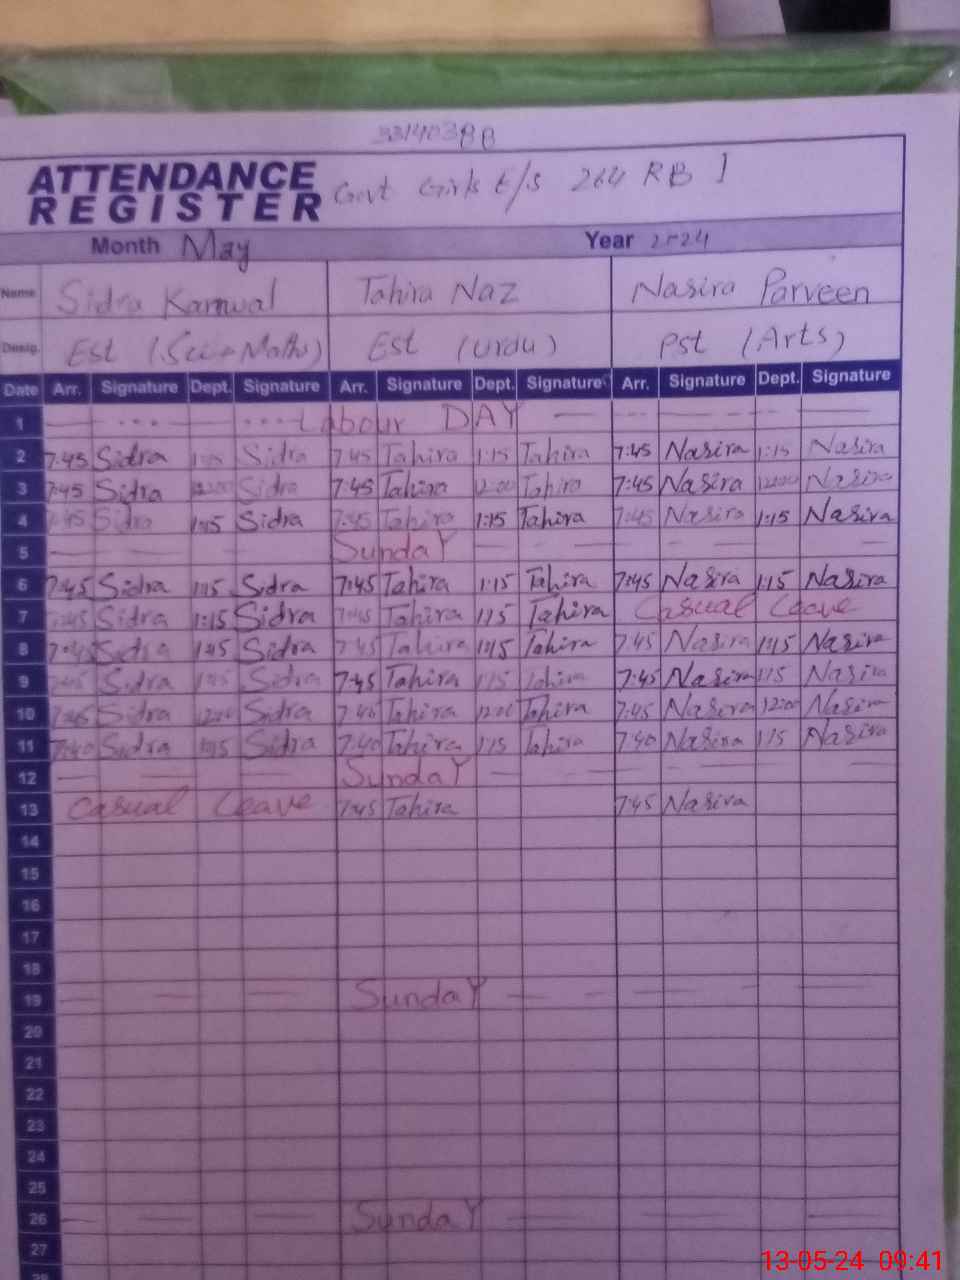 33140388
ATTENDANCE REGISTER Govt Girls E/S 264 RB I
Month May Year 2024
Name Sidra Kanwal Tahira Naz Nasira Parveen
Desig. Est (Sci-Maths) Est (Urdu) Pst (Arts)
Date Arr. Signature Dept. Signature Arr. Signature Dept. Signature Arr. Signature Dept. Signature
1 Labour DAY
2 7:45 Sidra 1:15 Sidra 7:45 Tahira 1:15 Tahira 7:45 Nasira 1:15 Nasira
3 7:45 Sidra 12:00 Sidra 7:45 Tahira 12:00 Tahira 7:45 Nasira 12:00 Nasira
4 7:45 Sidra 1:15 Sidra 7:45 Tahira 1:15 Tahira 7:45 Nasira 1:15 Nasira
5 Sunday
6 7:45 Sidra 1:15 Sidra 7:45 Tahira 1:15 Tahira 7:45 Nasira 1:15 Nasira
7 7:45 Sidra 1:15 Sidra 7:45 Tahira 1:15 Tahira Casual Leave
8 7:45 Sidra 1:15 Sidra 7:45 Tahira 1:15 Tahira 7:45 Nasira 1:15 Nasira
9 7:45 Sidra 1:15 Sidra 7:45 Tahira 1:15 Tahira 7:45 Nasira 1:15 Nasira
10 Sidra 12:00 Sidra Tahira 12:00 Tahira 7:45 Nasira 12:00 Nasira
11 7:40 Sidra 1:15 Sidra 7:40 Tahira 1:15 Tahira 7:40 Nasira 1:15 Nasira
12 Sunday
13 Casual Leave 7:45 Tahira 7:45 Nasira
14
15
16
17
18
19 Sunday
20
21
22
23
24
25
26 Sunday
27
28
13-05-24 09:41